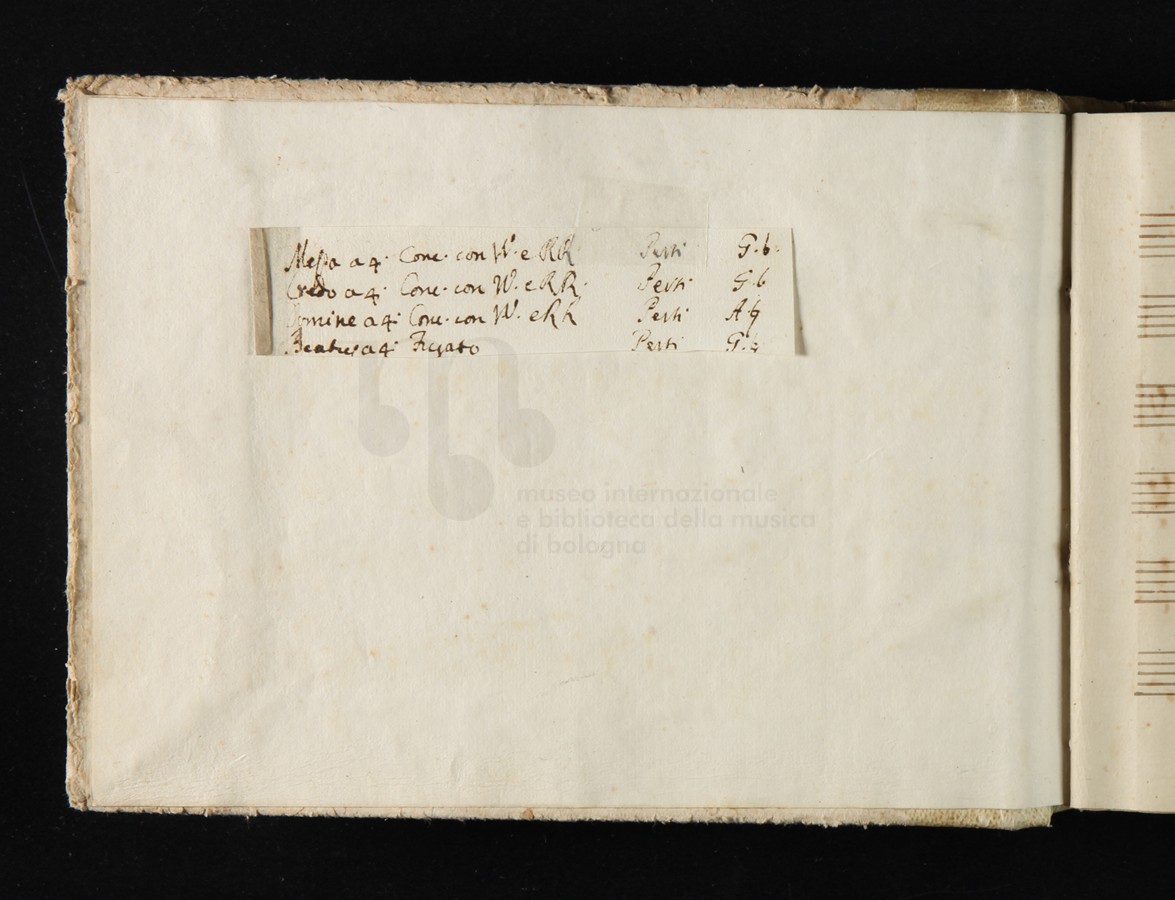 Messa a 4. Conc. con W. e RR Perti G. b.
Credo a 4. Conc. con W. e RR. Perti G. b
Domine a 4. Conc. con W. e RR Perti A
Beatus a 4. Fugato Perti G.
museo internazionale
e biblioteca della musica
di bologna